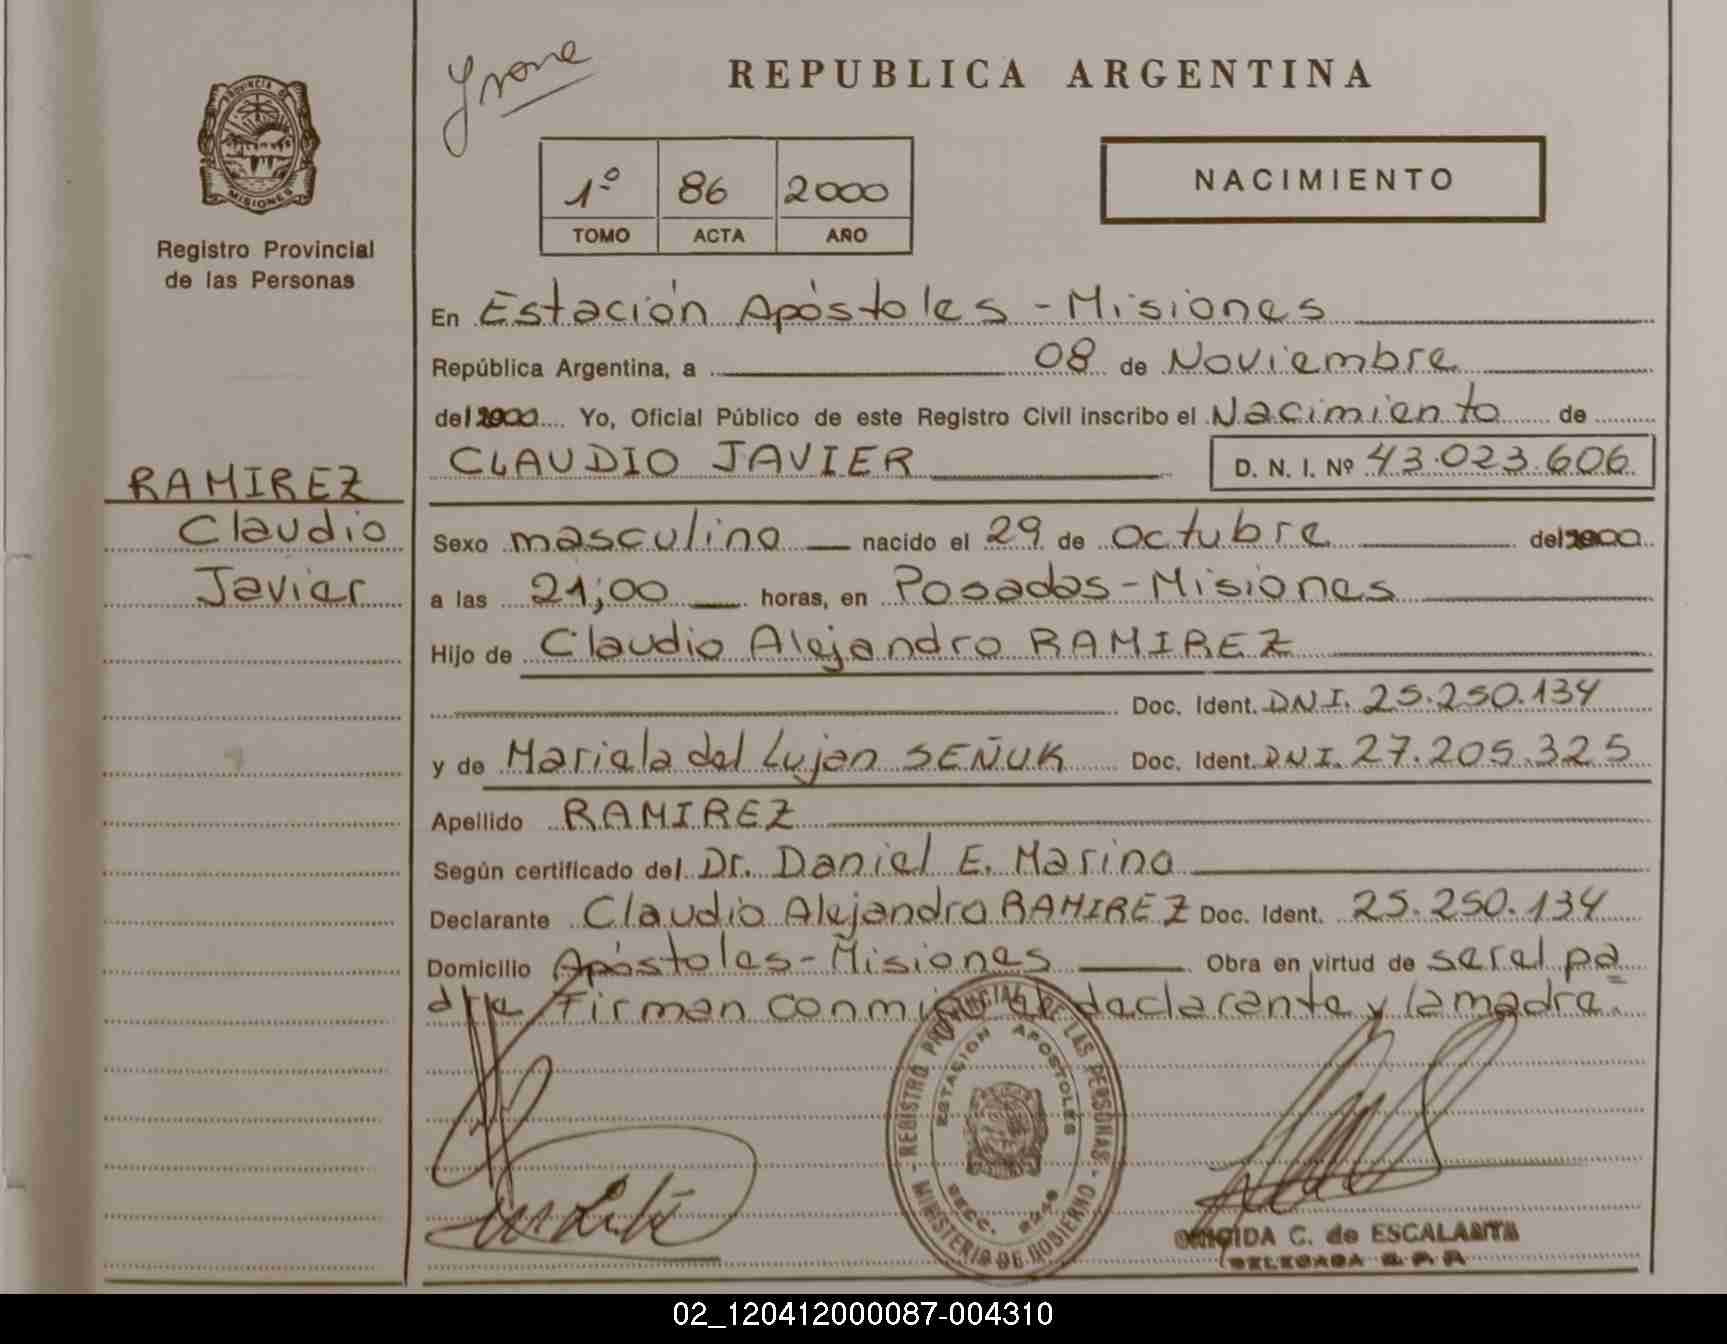 Yvone
REPUBLICA ARGENTINA
PROVINCIA DE
MISIONES
Registro Provincial
de las Personas
1º 86 2000
TOMO ACTA AÑO
NACIMIENTO
En Estación Apóstoles - Misiones
República Argentina, a 08 de Noviembre
del 2000 Yo, Oficial Público de este Registro Civil inscribo el Nacimiento de
CLAUDIO JAVIER D. N. I. Nº 43.023.606
RAMIREZ
Claudio
Javier
Sexo masculino nacido el 29 de octubre del 2000
a las 21;00 horas, en Posadas - Misiones
Hijo de Claudio Alejandro RAMIREZ
Doc. Ident. DNI. 25.250.134
y de Mariela del Lujan SEÑUK Doc. Ident. DNI. 27.205.325
Apellido RAMIREZ
Según certificado del Dr. Daniel E. Marino
Declarante Claudio Alejandro RAMIREZ Doc. Ident. 25.250.134
Domicilio Apóstoles - Misiones Obra en virtud de ser el pa
dre Firman conmigo el declarante y la madre.
REGISTRO PROVINCIAL DE LAS PERSONAS
- MINISTERIO DE GOBIERNO -
ESTACION APOSTOLES
SECC.
C. de ESCALANTE
DELEGADA R. P. P.
02_120412000087-004310